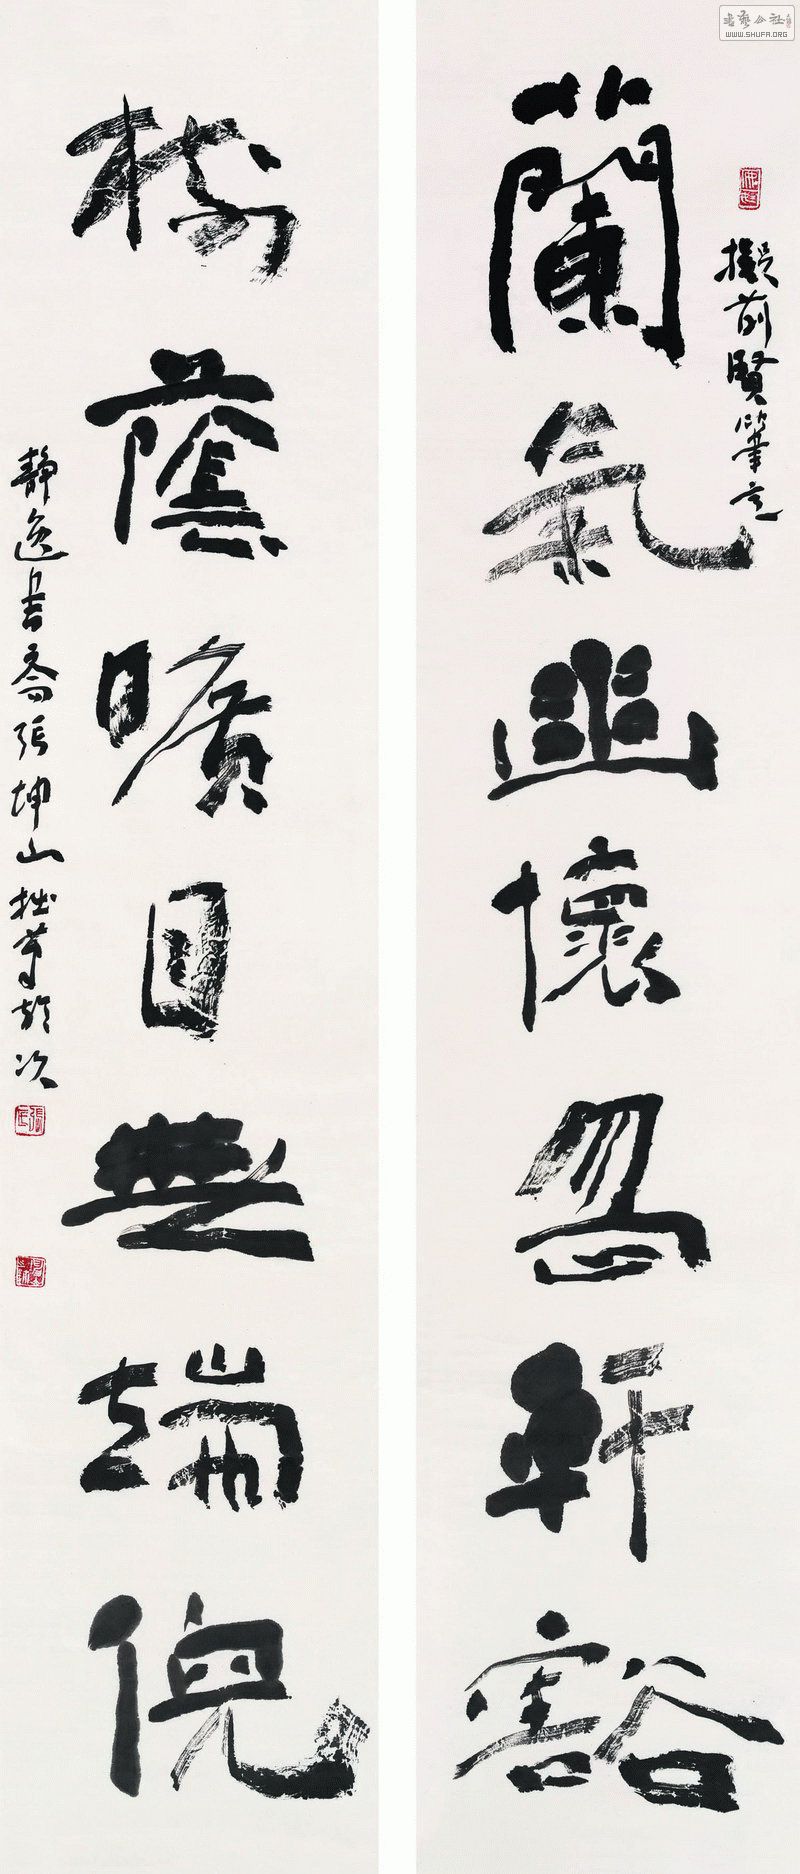 書藝公社
WWW.SHUFA.ORG
擬前賢筆意
蘭氣幽懷忽軒豁
樹蔭曠目無端倪
静逸書齋張坤山拙筆於次